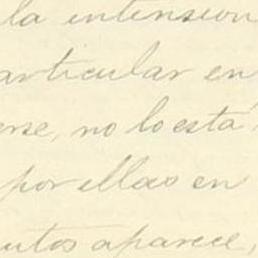 la intension
articular en
erse, no lo está
por ellas en
utos aparece,